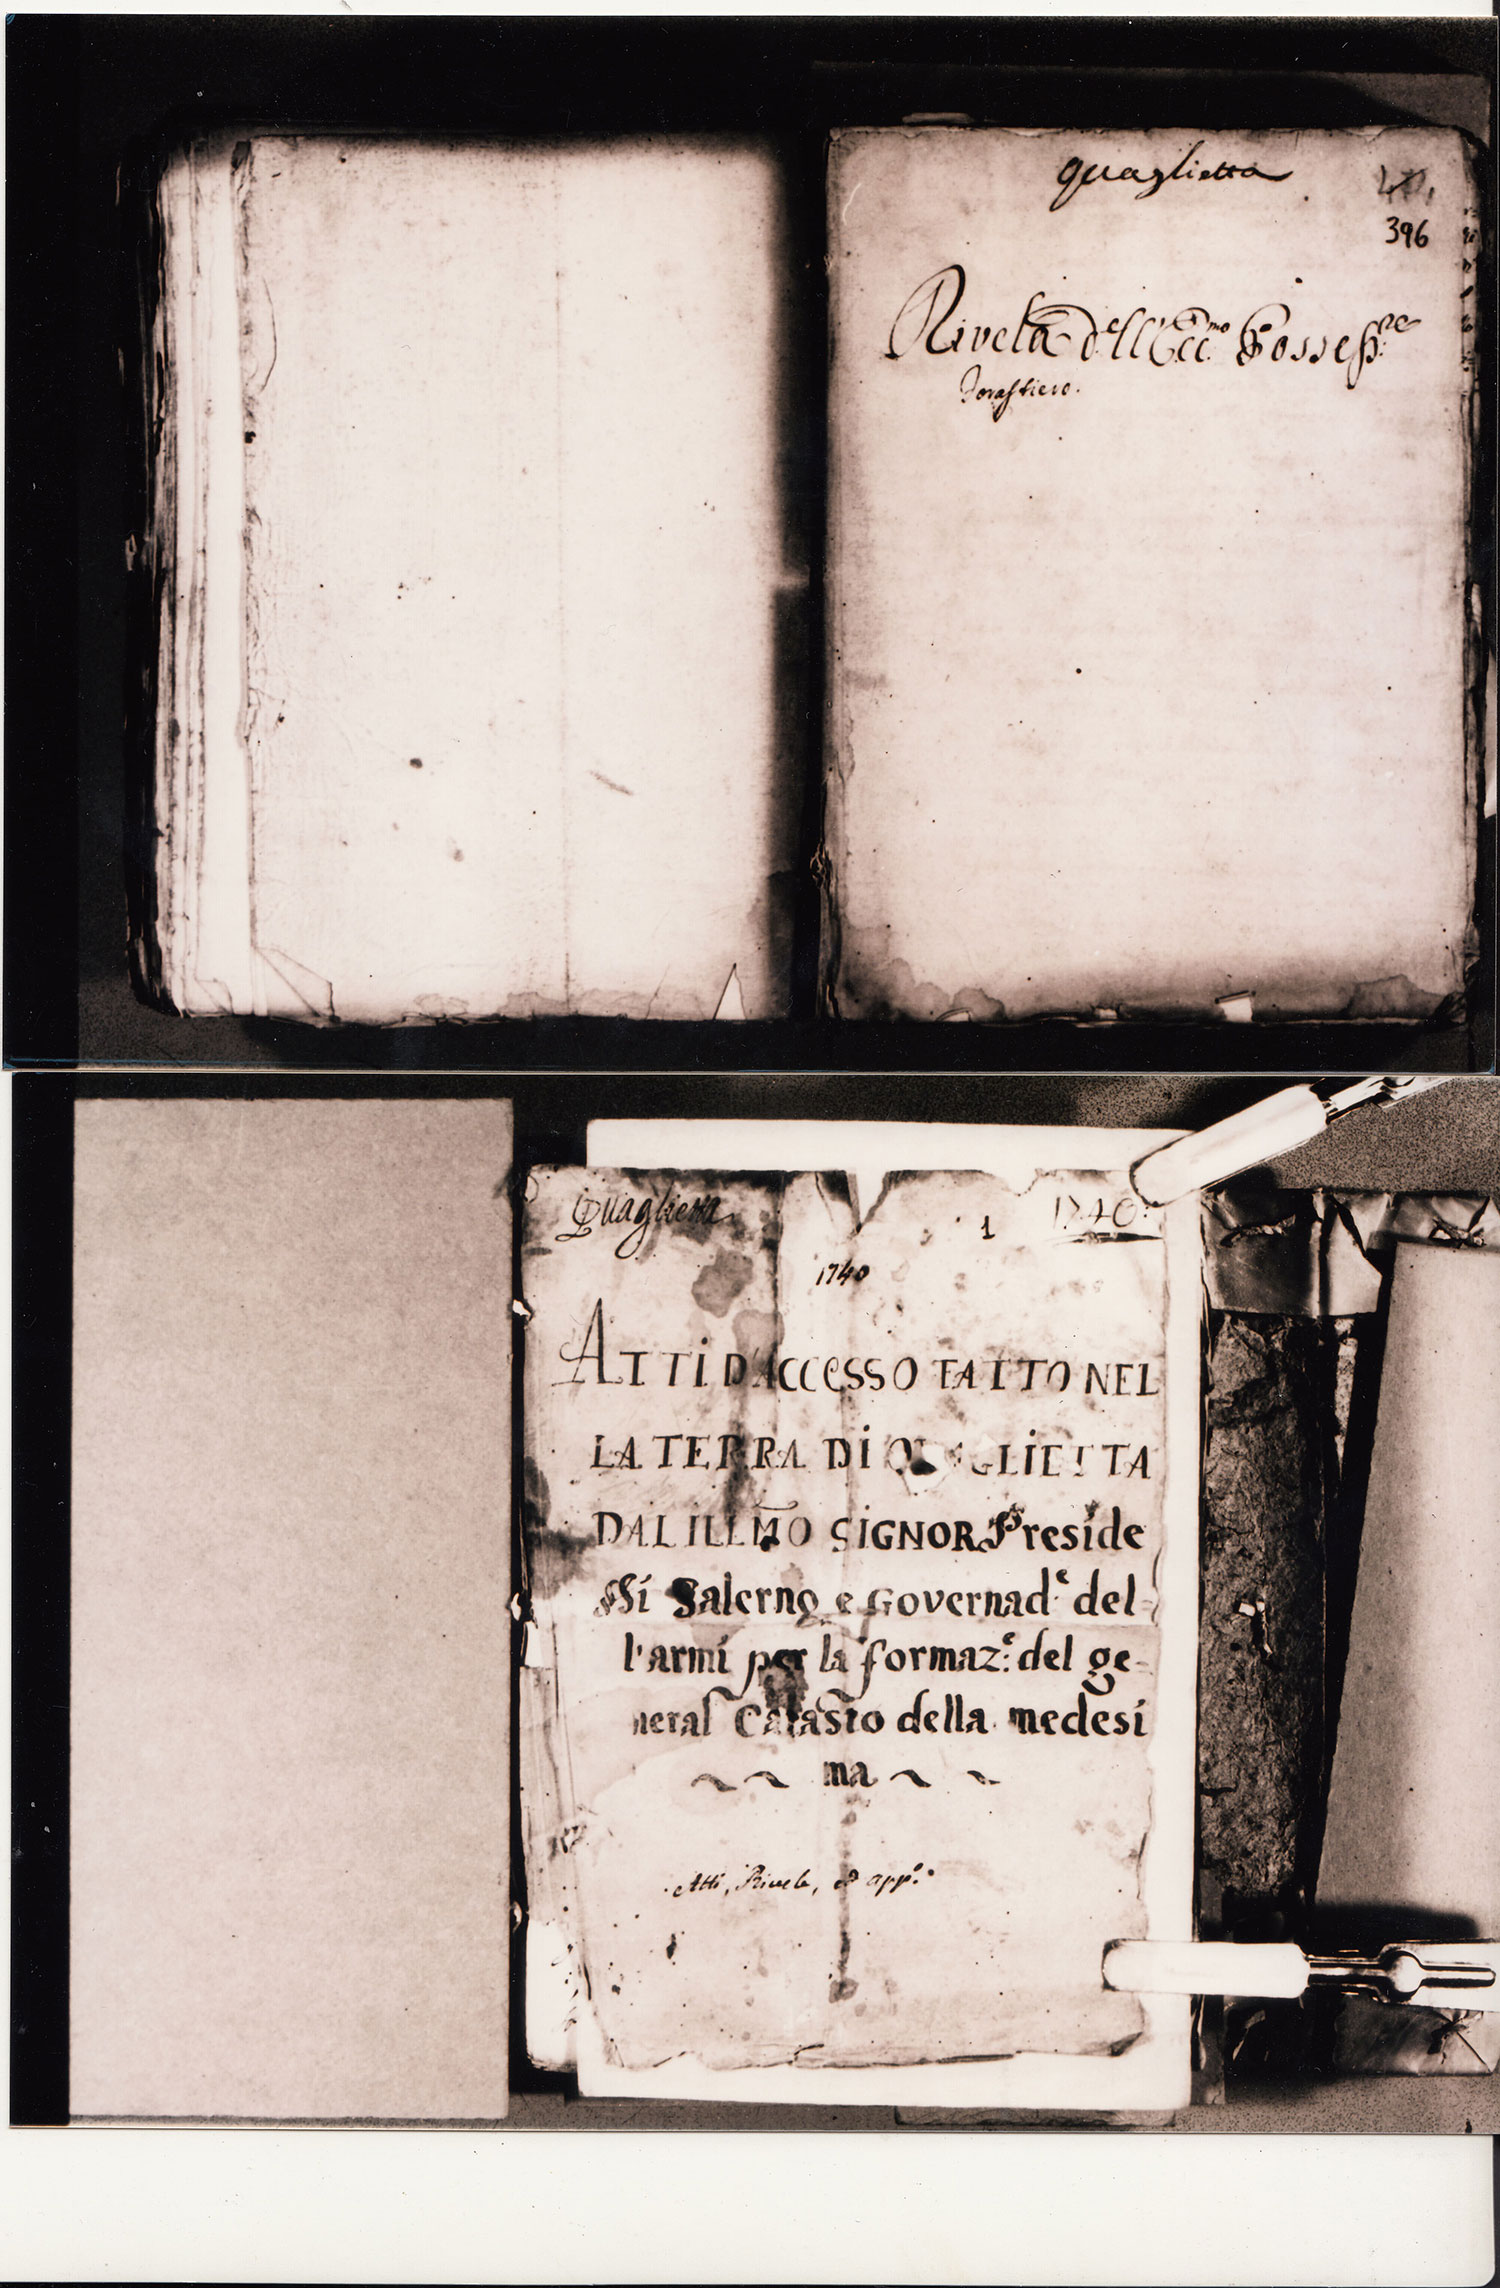 quaglietta
396
Rivela dell'Ecc.mo Possess.re
Forastiero.
Quaglietta
1
1740.
1740
ATTI D'ACCESSO FATTO NEL
LA TERRA DI QUAGLIETTA
DAL ILLMO SIGNOR Preside
di Salerno e Governad.e del-
l'armi per la formaz.e del ge-
neral Catasto della medesi
~ ~ ma ~ ~
Atti, Rivele, ed app.o